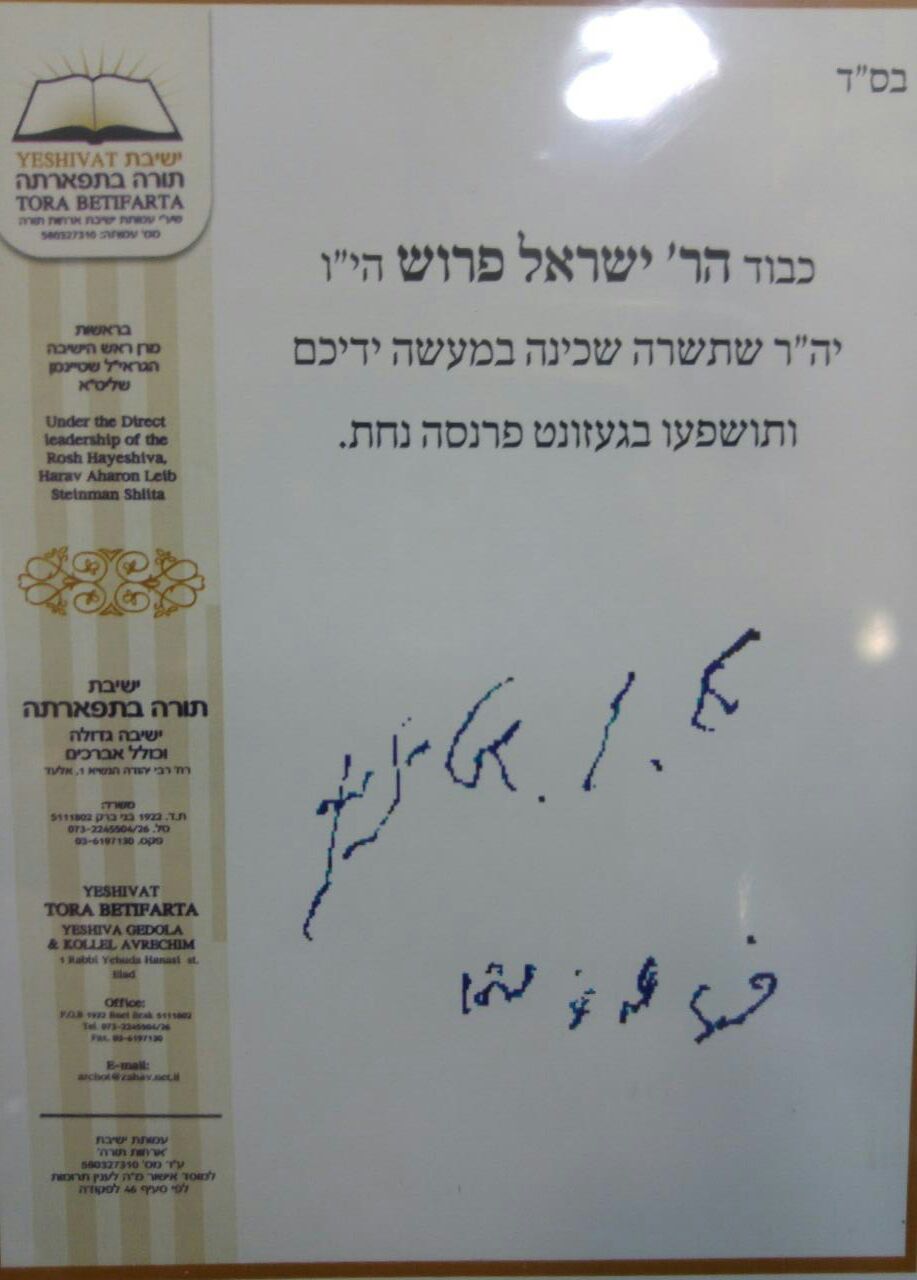 בס"ד
ישיבת YESHIVAT
תורה בתפארתה
TORA BETIFARTA
שע"י עמותת ישיבת ארחות תורה
מס' עמותה: 580327310
כבוד הר' ישראל פרוש הי"ו
יה"ר שתשרה שכינה במעשה ידיכם
ותושפעו בגעזונט פרנסה נחת.
בראשות
מרן ראש הישיבה
הגראי"ל שטיינמן
שליט"א
Under the Direct
leadership of the
Rosh Hayeshiva,
Harav Aharon Leib
Steinman Shlita
ישיבת
תורה בתפארתה
ישיבה גדולה
וכולל אברכים
רח' רבי יהודה הנשיא 1, אלעד
משרד:
ת.ד. 1922 בני ברק 5111802
טל. 073-2245504/26
פקס. 03-6197130
YESHIVAT
TORA BETIFARTA
YESHIVA GEDOLA
& KOLLEL AVRECHIM
1 Rabbi Yehuda Hanasi st.
Elad
Office:
P.O.B 1922 Bnei Brak 5111802
Tel. 073-2245504/26
Fax. 03-6197130
E-mail:
archot@zahav.net.il
עמותת ישיבת
'ארחות תורה'
ע"ר מס' 580327310
למוסד אישור מ"ה לענין תרומות
לפי סעיף 46 לפקודה